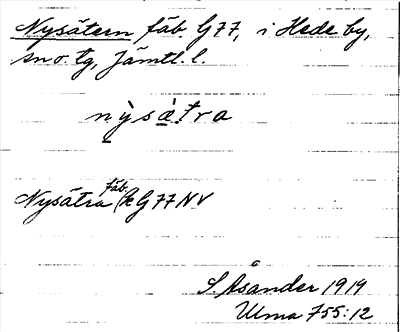 Nysätern fäb. G77, i Hede by,
sn o. tg, Jämtl. l.
nỳsä̀tra
Nysätra Fäb. (k G77NV
S. Åsander 1919
Ulma 755:12